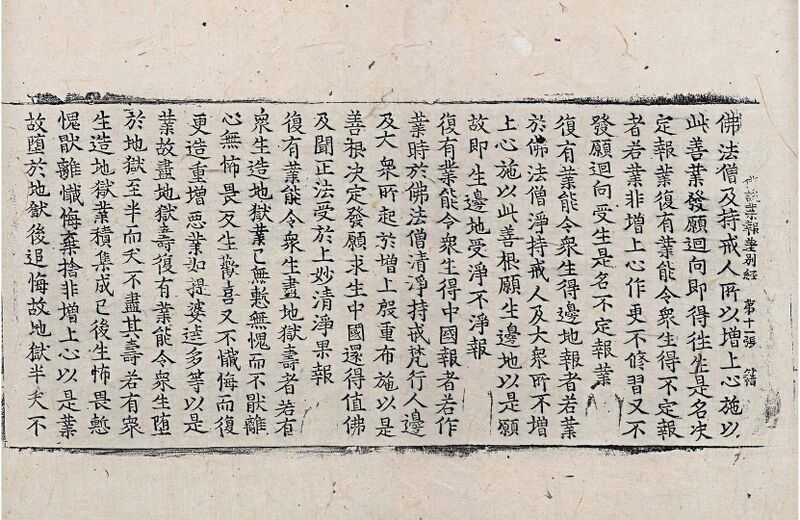 佛說業報差別經 第十張
佛法僧及持戒人所以增上心施以
此善業發願迴向即得往生是名决
定報業復有業能令衆生得不定報
者若業非增上心作更不修習又不
發願迴向受生是名不定報業
復有業能令衆生得邊地報者若業
於佛法僧淨持戒人及大衆所不增
上心施以此善根願生邊地以是願
故即生邊地受淨不淨報
復有業能令衆生得中國報者若作
業時於佛法僧清淨持戒梵行人邊
及大衆所起於增上殷重布施以是
善根决定發願求生中國還得值佛
及聞正法受於上妙清淨果報
復有業能令衆生盡地獄壽者若有
衆生造地獄業已無慙無愧而不猒離
心無怖畏反生歡喜又不懺悔而復
更造重增惡業如提婆達多等以是
業故盡地獄壽復有業能令衆生墮
於地獄至半而夭不盡其壽若有衆
生造地獄業積集成已後生怖畏慙
愧猒離懺悔棄捨非增上心以是業
故墮於地獄後追悔故地獄半夭不